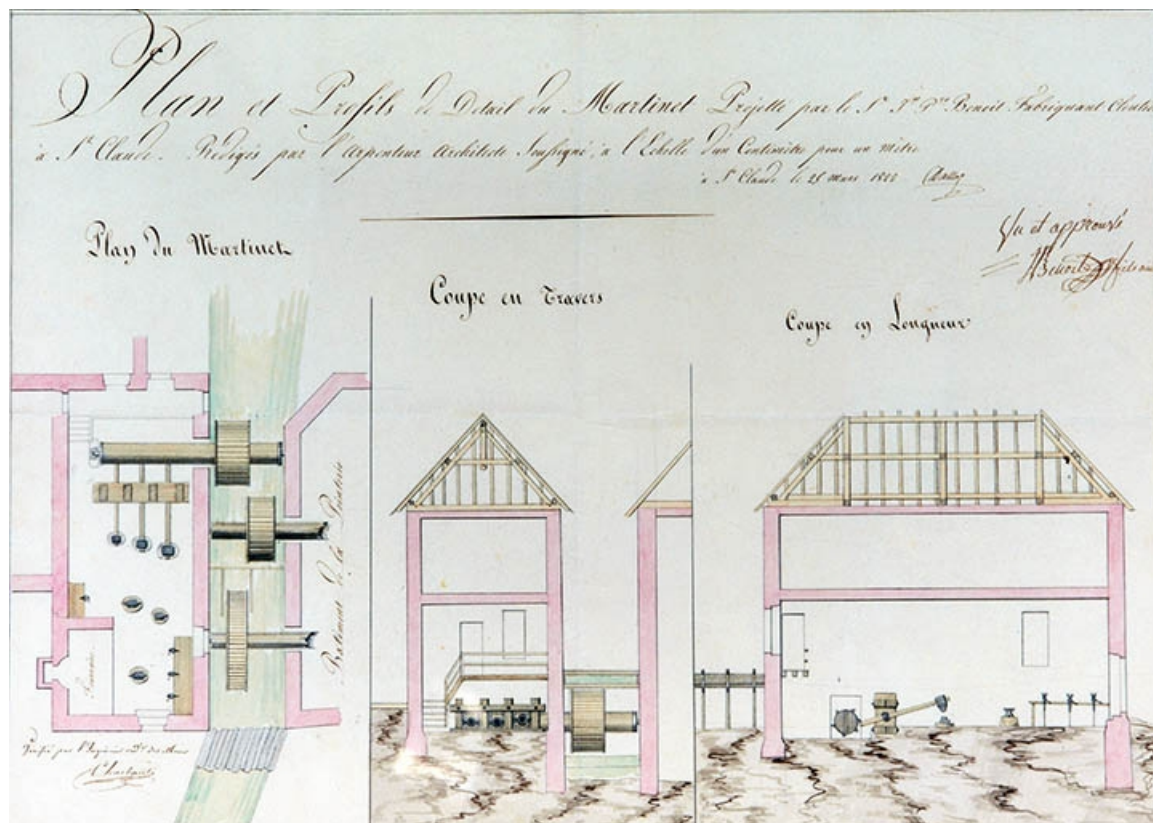 Plan et Profils de Détail du Martinet Projetté par le Sr. Benoit Fabriquant Cloutier
à St. Claude. Rédigés par l'Arpenteur Architecte Soussigné, à l'Echelle d'un Centimètre pour un mètre
à St. Claude le 25 mars
Vu et approuvé
Plan du Martinet
Coupe en Travers
Coupe en Longueur
Batiment de la
Vérifié par l'Ingénieur des Mines